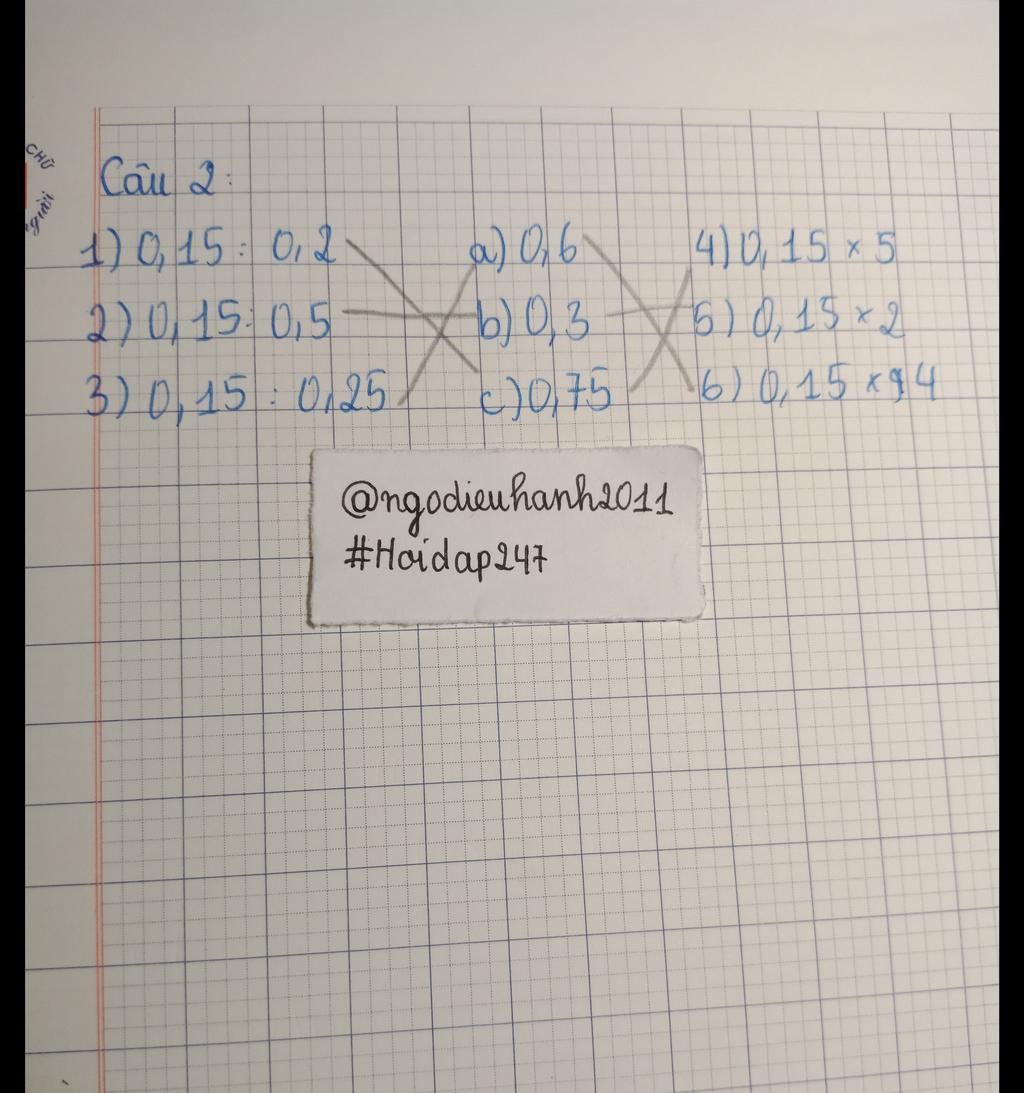 CHỮ
Câu 2:
1) 0,15 : 0,2 a) 0,6 4) 0,15 × 5
2) 0,15 : 0,5 b) 0,3 5) 0,15 × 2
3) 0,15 : 0,25 c) 0,75 6) 0,15 × 4
@ngodieuhanh2011
#Hoidap247